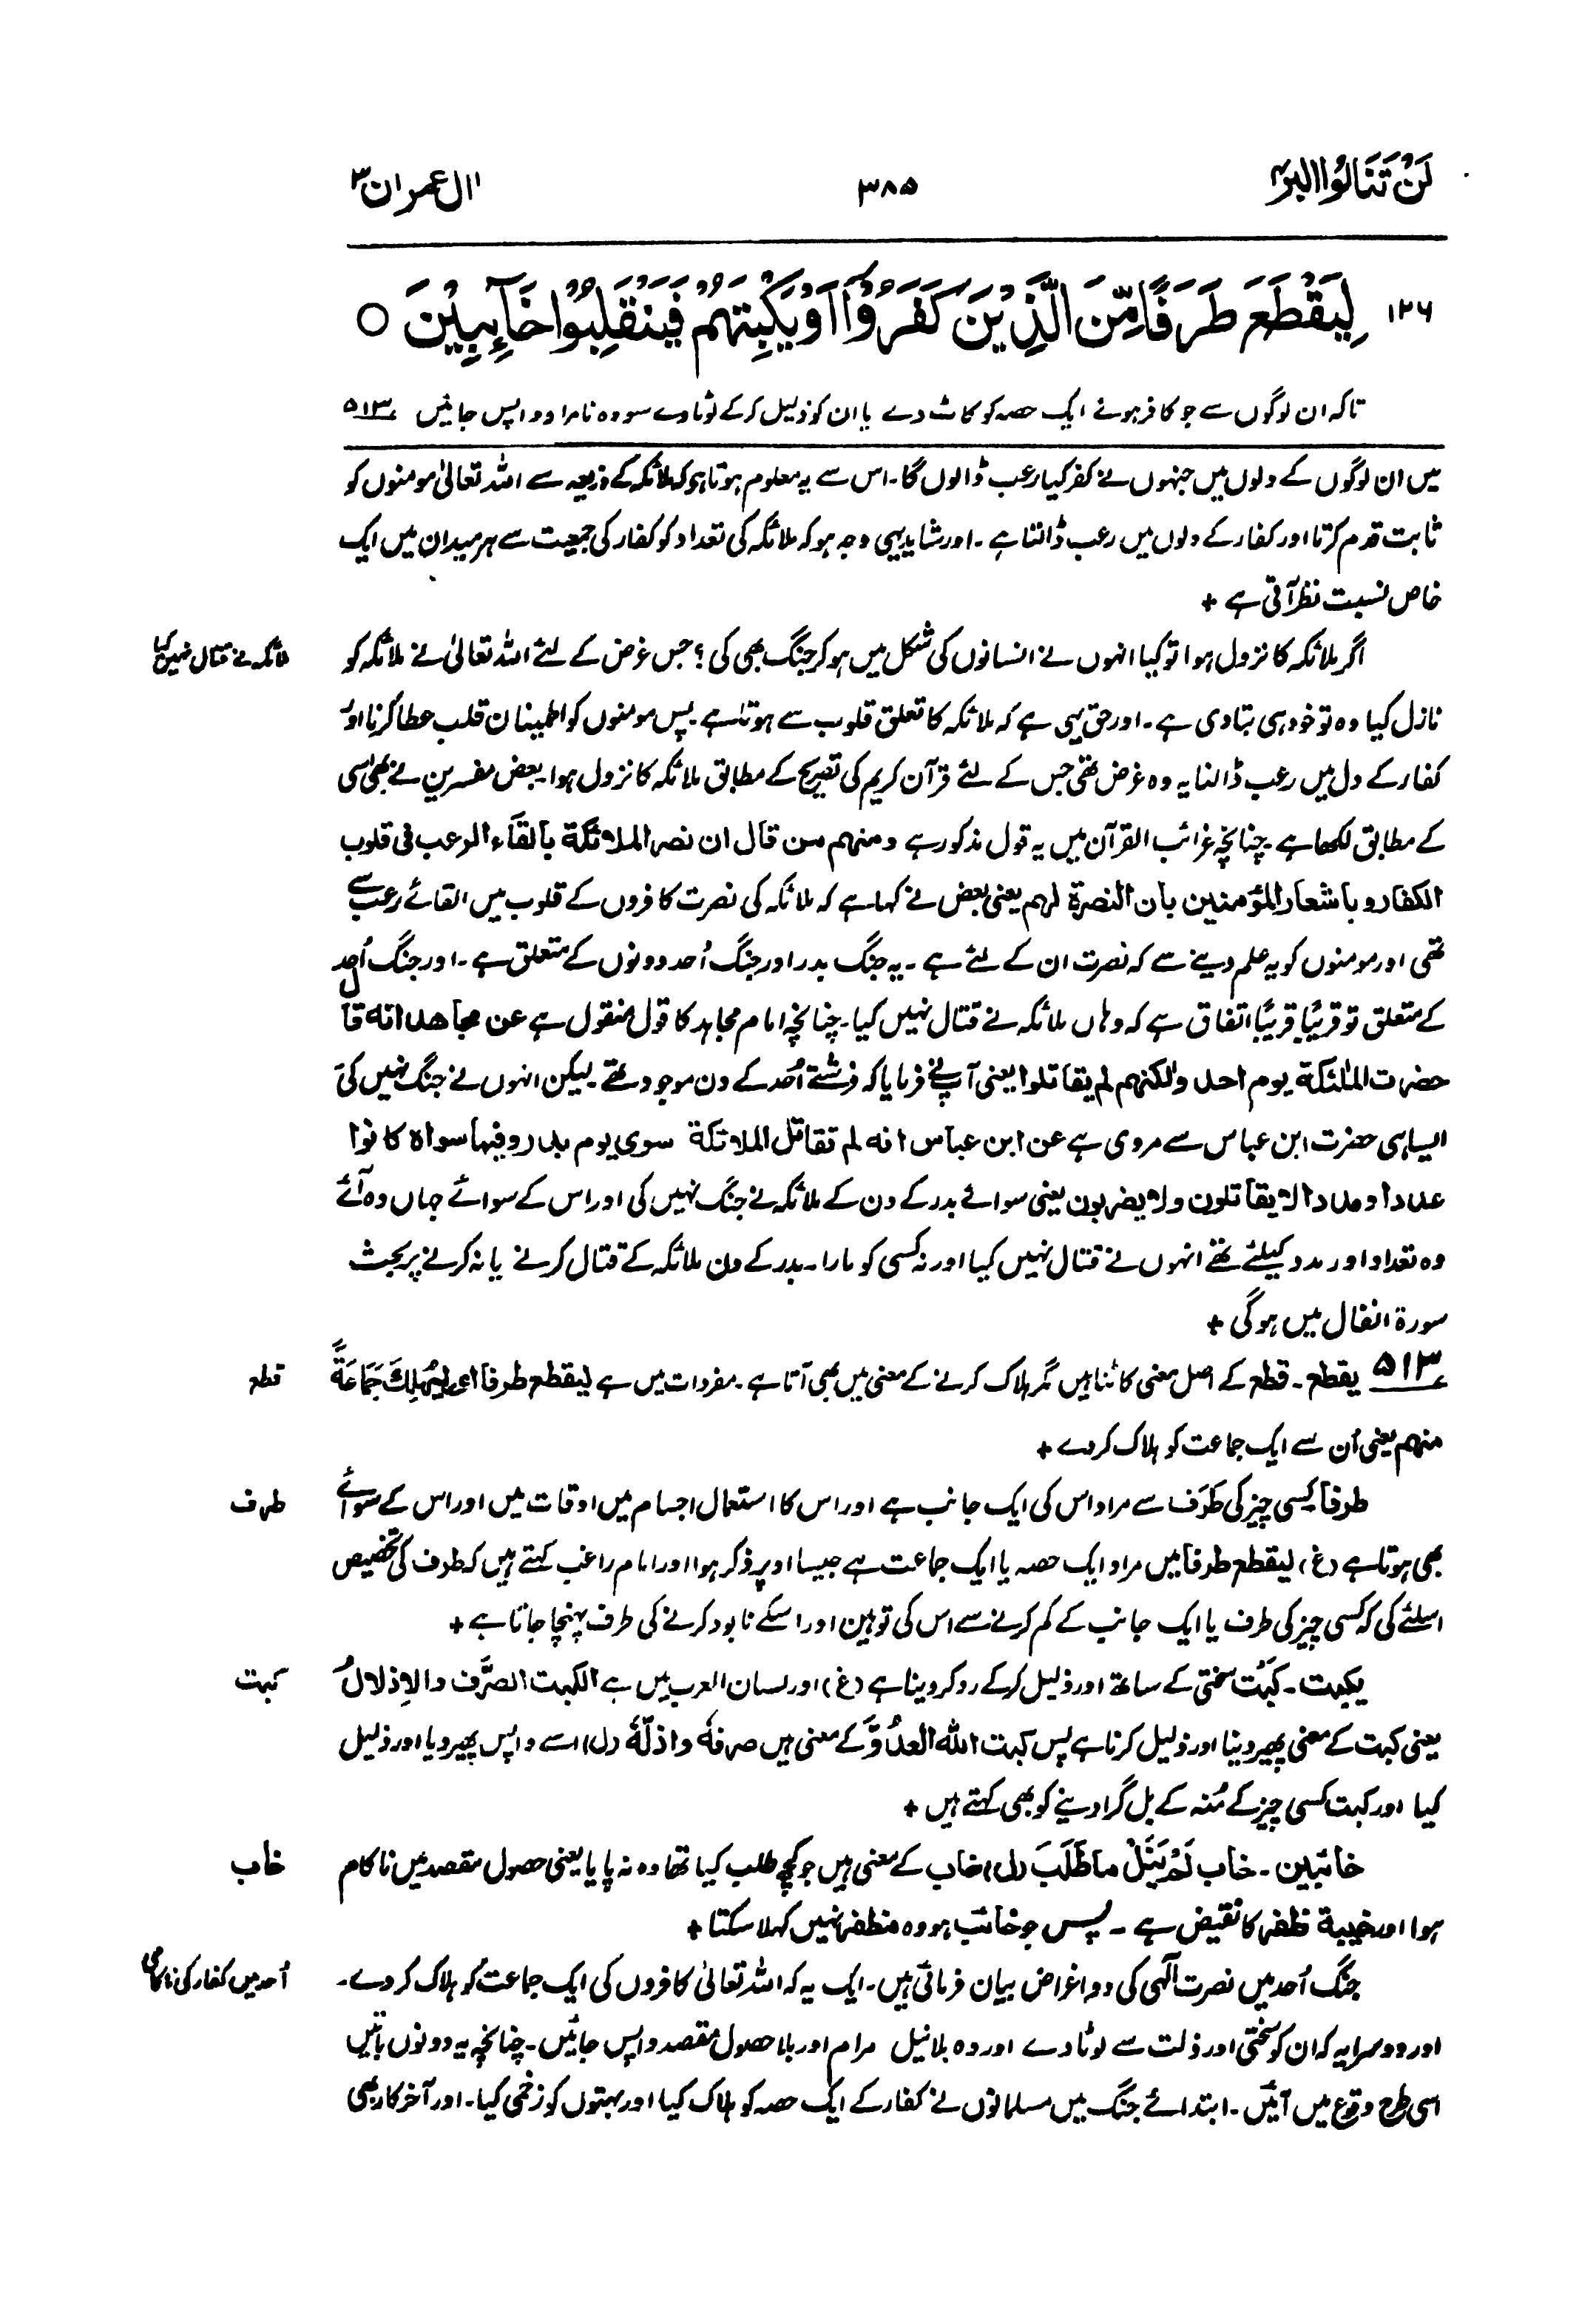 لَنْ تَنَالُوا الْبِرَّ
۳۸۵
اٰل عمران ۳
۱۲۶ لِيَقْطَعَ طَرَفًا مِّنَ الَّذِيْنَ كَفَرُوْٓا اَوْ يَكْبِتَهُمْ فَيَنْقَلِبُوْا خَآئِبِيْنَ ○
تاکہ ان لوگوں سے جو کافر ہوئے ایک حصہ کو کاٹ دے یا ان کو ذلیل کرکے لوٹا دے سو وہ نامراد واپس جائیں ۵۱۳
میں ان لوگوں کے دلوں میں جنہوں نے کفر کیا رعب ڈالوں گا۔ اس سے یہ معلوم ہوتا ہو کہ ملائکہ کے ذریعہ سے اللہ تعالیٰ مومنوں کو
ثابت قدم کرتا اور کفار کے دلوں میں رعب ڈالتا ہے۔ اور شاید یہی وجہ ہو کہ ملائکہ کی تعداد کو کفار کی جمعیت سے ہر میدان میں ایک
خاص نسبت نظر آتی ہے +
ملائکہ نے قتال نہیں کیا
اگر ملائکہ کا نزول ہوا تو کیا انہوں نے انسانوں کی شکل میں ہو کر جنگ بھی کی؟ جس غرض کے لئے اللہ تعالیٰ نے ملائکہ کو
نازل کیا وہ تو خود ہی بتا دی ہے۔ اور حق یہی ہے کہ ملائکہ کا تعلق قلوب سے ہوتا ہے۔ پس مومنوں کو اطمینان قلب عطا کرنا اور
کفار کے دل میں رعب ڈالنا یہ وہ غرض تھی جس کے لئے قرآن کریم کی تصریح کے مطابق ملائکہ کا نزول ہوا۔ بعض مفسرین نے بھی اسی
کے مطابق لکھا ہے۔ چنانچہ غرائب القرآن میں یہ قول مذکور ہے ومنہم من قال ان نصر الملائکة بالقاء الرعب فی قلوب
الکفار و باشعار المؤمنین بان النصرة لہم یعنی بعض نے کہا ہے کہ ملائکہ کی نصرت کافروں کے قلوب میں القائے رعب سے
تھی اور مومنوں کو یہ علم دینے سے کہ نصرت ان کے لئے ہے۔ یہ جنگ بدر اور جنگ اُحد دونوں کے متعلق ہے۔ اور جنگ اُحد
کے متعلق تو قریبًا قریبًا اتفاق ہے کہ وہاں ملائکہ نے قتال نہیں کیا۔ چنانچہ امام مجاہد کا قول منقول ہے عن مجاھد انہ قال
حضرت الملٰئکة یوم احد ولٰکنہم لم یقاتلوا یعنی آپ نے فرمایا کہ فرشتے اُحد کے دن موجود تھے۔ لیکن انہوں نے جنگ نہیں کی
ایسا ہی حضرت ابن عباس سے مروی ہے عن ابن عباس انہ لم تقاتل الملائکة سوی یوم بدر وفیہا سواہ کانوا
عددا و مددا لا یقاتلون ولا یضربون یعنی سوائے بدر کے دن کے ملائکہ نے جنگ نہیں کی اور اس کے سوائے جہاں وہ آئے
وہ تعداد اور مدد کیلئے تھے انہوں نے قتال نہیں کیا اور نہ کسی کو مارا۔ بدر کے دن ملائکہ کے قتال کرنے یا نہ کرنے پر بحث
سورة انفال میں ہوگی +
قطع
۵۱۳ یقطع۔ قطع کے اصل معنی کاٹنا ہیں مگر ہلاک کرنے کے معنی میں بھی آتا ہے۔ مفردات میں ہے لیقطع طرفا ای لِیُہْلِكَ جَمَاعَةً
منہم یعنی اُن سے ایک جماعت کو ہلاک کر دے +
طرف
طرفا کسی چیز کی طَرَف سے مراد اس کی ایک جانب ہے اور اس کا استعمال اجسام میں اوقات میں اور اس کے سوائے
بھی ہوتا ہے (غ) لیقطع طرفا میں مراد ایک حصہ یا ایک جماعت ہے جیسا اوپر ذکر ہوا اور امام راغب کہتے ہیں کہ طرف کی تخصیص
اسلئے کی کہ کسی چیز کی طرف یا ایک جانب کے کم کرنے سے اس کی توہین اور اسکے نابود کرنے کی طرف پہنچا جاتا ہے +
کبت
یکبت۔ کَبْت سختی کے ساتھ اور ذلیل کرکے رد کر دینا ہے (غ) اور لسان العرب میں ہے الکبت الصَّرْف والاِذلال
یعنی کبت کے معنی پھیر دینا اور ذلیل کرنا ہے پس کبت اللّٰہ العدُوَّ کے معنی ہیں صرفہٗ واذلّہٗ (ل) اسے واپس پھیر دیا اور ذلیل
کیا اور کبت کسی چیز کے مُنہ کے بل گرا دینے کو بھی کہتے ہیں +
خاب
خائبین۔ خاب لَمْ یَنَلْ ما طَلَبَ (ل) خاب کے معنی ہیں جو کچھ طلب کیا تھا وہ نہ پایا یعنی حصول مقصد میں ناکام
ہوا اور خیبة ظفر کا نقیض ہے۔ پس جو خائب ہو وہ مظفر نہیں کہلا سکتا +
اُحد میں کفار کی ناکامی
جنگ اُحد میں نصرت الٰہی کی دو اغراض بیان فرمائی ہیں۔ ایک یہ کہ اللہ تعالیٰ کافروں کی ایک جماعت کو ہلاک کر دے۔
اور دوسرا یہ کہ ان کو سختی اور ذلت سے لوٹا دے اور وہ بلا نیل مرام اور بلا حصول مقصد واپس جائیں۔ چنانچہ یہ دونوں باتیں
اسی طرح وقوع میں آئیں۔ ابتدائے جنگ میں مسلمانوں نے کفار کے ایک حصہ کو ہلاک کیا اور بہتوں کو زخمی کیا۔ اور آخر کار بھی